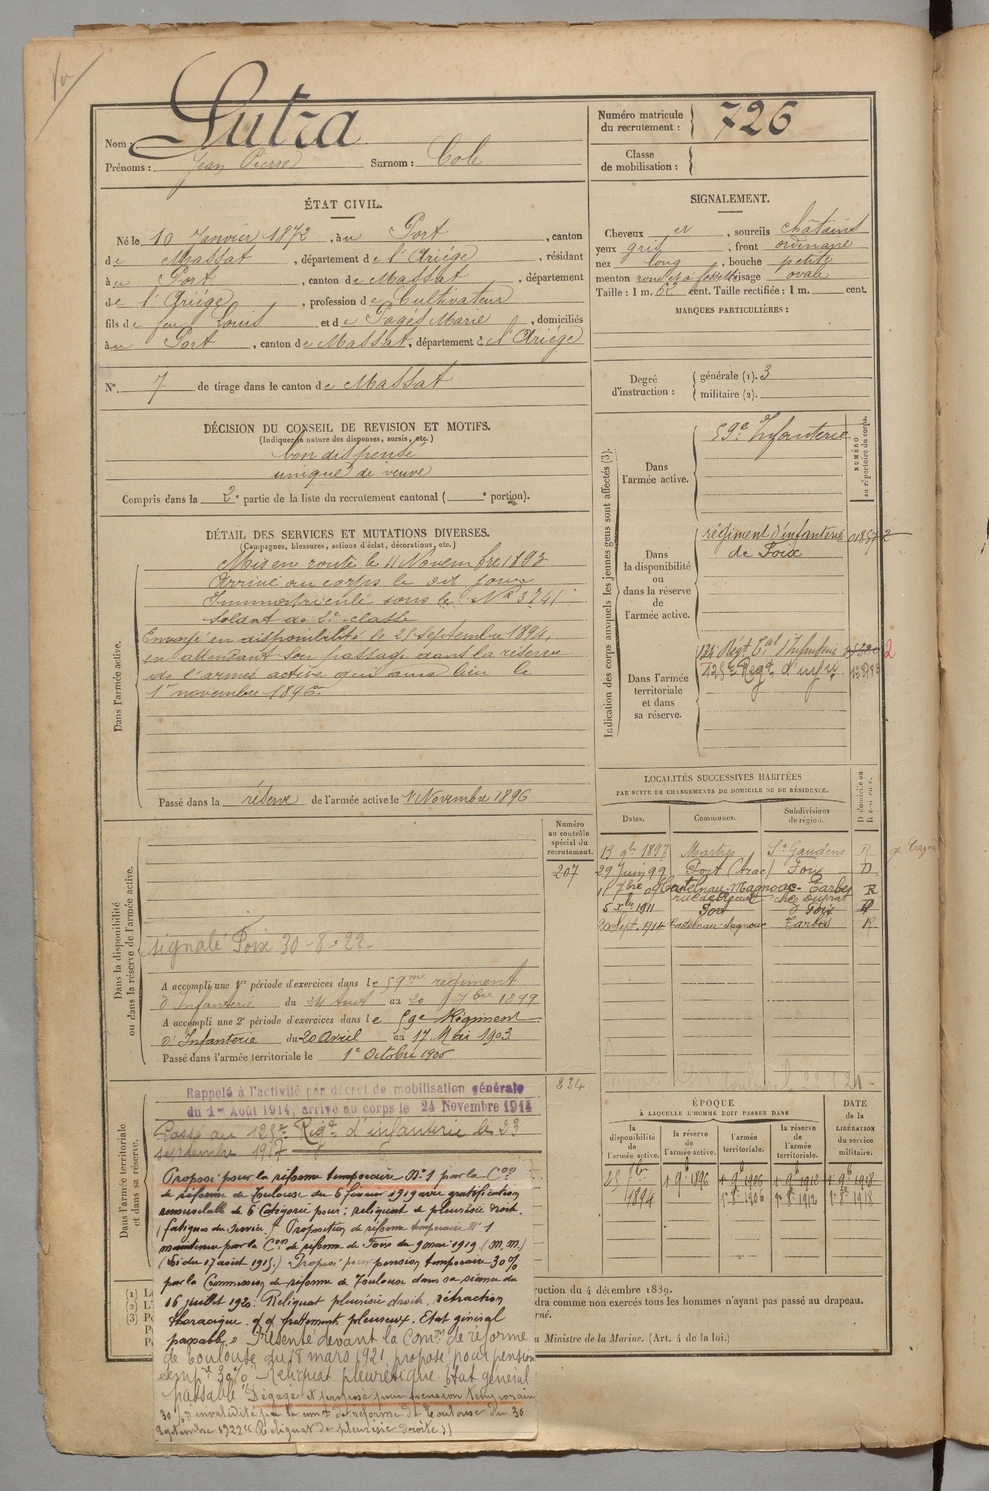 Nom : Lutra
Prénoms : Jean Pierre Surnom : Cole
Numéro matricule
du recrutement : 726
Classe
de mobilisation :
ÉTAT CIVIL.
Né le 10 Janvier 1872, à u Port, canton
de Massat, département de l'Ariège, résidant
à u Port, canton de Massat, département
de l'Ariège, profession de Cultivateur
fils de feu Louis et de Pagès Marie, domiciliés
à u Port, canton de Massat, département de l'Ariège
N° 7 de tirage dans le canton de Massat
SIGNALEMENT.
Cheveux er, sourcils châtains
yeux gris, front ordinaire
nez long, bouche petite
menton rond et à fossette visage ovale
Taille : 1 m. 62 cent. Taille rectifiée : 1 m. cent.
MARQUES PARTICULIÈRES :
Degré
d'instruction :
générale (1). 3
militaire (2).
DÉCISION DU CONSEIL DE REVISION ET MOTIFS.
(Indiquer la nature des dispenses, sursis, etc.)
bon dispensé
unique de veuve
Compris dans la 2e partie de la liste du recrutement cantonal ( e portion).
DÉTAIL DES SERVICES ET MUTATIONS DIVERSES.
(Campagnes, blessures, actions d'éclat, décorations, etc.)
Dans l'armée active.
Mis en route le 11 Novembre 1893
Arrivé au corps le dit jour
Immatriculé sous le N° 3741
soldat de 2e classe
Envoyé en disponibilité le 25 septembre 1894,
en attendant son passage dans la réserve
de l'armée active qui aura lieu le
1er novembre 1896.
Passé dans la réserve de l'armée active le 1er Novembre 1896
Indication des corps auxquels les jeunes gens sont affectés (3).
NUMÉRO
au répertoire du corps.
Dans
l'armée active.
59e Infanterie
Dans
la disponibilité
ou
dans la réserve
de l'armée active.
régiment d'infanterie
de Foix
Dans l'armée
territoriale
et dans
sa réserve.
134e Régt Tal d'Infanterie
125e Regt d'infrie
Dans la disponibilité
ou dans la réserve de l'armée active.
Numéro
au contrôle
spécial du
recrutement.
207
signalé Foix 30-8-22-
A accompli une 1re période d'exercices dans le 59me régiment
d'Infanterie du 24 Aout au 20 7bre 1899
A accompli une 2e période d'exercices dans le 59e Régiment
d'Infanterie du 20 Avril au 17 Mai 1903
Passé dans l'armée territoriale le 1er Octobre 1906
LOCALITÉS SUCCESSIVES HABITÉES
PAR SUITE DE CHANGEMENTS DE DOMICILE OU DE RÉSIDENCE.
Dates. Communes. Subdivisions
de région. D domicile ou
R résidence.
13 9bre 1897 Martres St Gaudens R
29 Juin 99 Port (Arac) Foix D
Castelnau-Magnoac Tarbes R
chez Duprat
5 Xbre 1911 Port Foix D
20 Sept. 1914 Castelnau-Magnoac Tarbes R
Dans l'armée territoriale
et dans sa réserve.
834
Rappelé à l'activité par décret de mobilisation générale
du 1er Août 1914, arrivé au corps le 24 Novembre 1914
Passé au 125e Regt d'infanterie le 23
septembre 1917
Proposé pour la réforme temporaire N° 1 par la Con
de réforme de Toulouse du 6 février 1919 avec gratification
renouvelable de 6e Catégorie pour : reliquat de pleurésie droite.
(fatigues du service) Proposition de réforme temporaire N° 1
maintenue par la Con de réforme de Foix du 9 mai 1919 (M.M.)
(Loi du 17 aout 1915.) Proposé pour pension temporaire 30%
par la Commission de réforme de Toulouse dans sa séance du
16 juillet 1920. Reliquat pleurésie droite, rétraction
thoracique frottements pleuraux. Etat général
passable. Présenté devant la Comon de réforme
de Toulouse du 18 mars 1921 proposé pour pension
tempre 30% "Reliquat pleurétique. Etat général
passable" Dégagé et proposé pour pension temporaire
30% d'invalidité par la comon de réforme de Toulouse du 30
septembre 1922 (Reliquat de pleurésie droite)
ÉPOQUE
À LAQUELLE L'HOMME DOIT PASSER DANS
DATE
de la
LIBÉRATION
du service
militaire.
la
disponibilité
de
l'armée active.
la réserve
de
l'armée active.
l'armée
territoriale.
la réserve
de
l'armée
territoriale.
25 7bre
1894
1er 9bre 1896
1er 9bre 1906 1er 9bre 1912 1er 9bre 1918
1er 8bre 1906 1er 8bre 1912 1er 8bre 1918
ruction du 4 décembre 1889.
dra comme non exercés tous les hommes n'ayant pas passé au drapeau.
rné.
u Ministre de la Marine. (Art. 4 de la loi.)
(1)
(2)
(3)